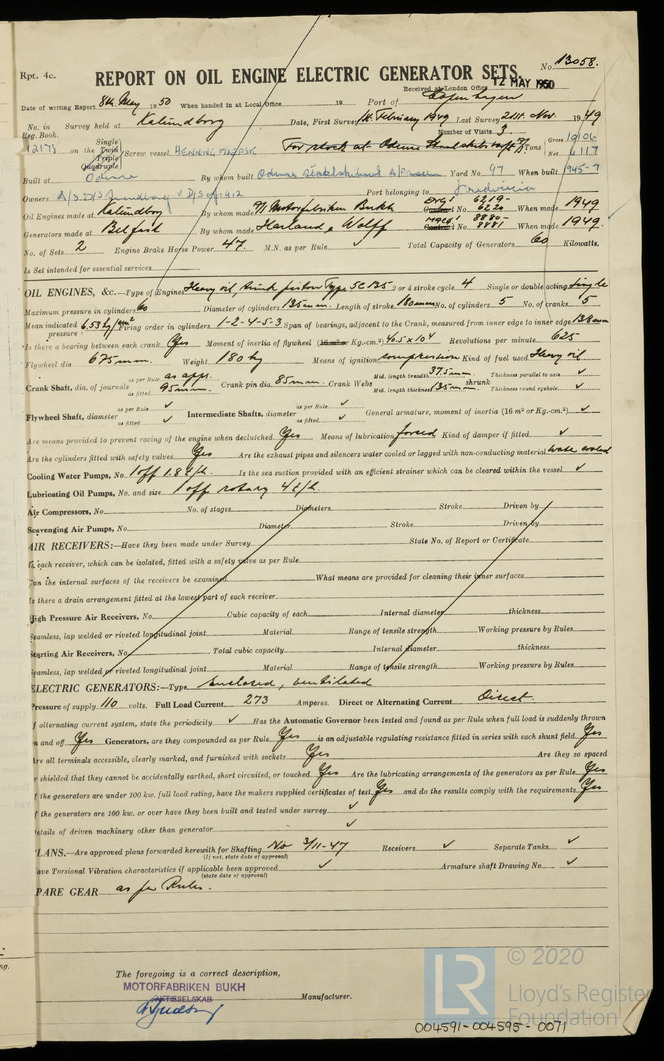 Rpt. 4c.
No. 13058.
REPORT ON OIL ENGINE ELECTRIC GENERATOR SETS.
Received at London Office 12 MAY 1950
Date of writing Report 8th May 1950 When handed in at Local Office 19 Port of Copenhagen
No. in Reg. Book. Survey held at Kalundborg Date, First Survey 14 February 1949 Last Survey 2nd Nov. 1949
Number of Visits 3
12178 on the Single Twin Triple Quadruple Screw vessel HENNING MAERSK For stock at Odense Tons Gross 10106 Net 6117
Built at Odense By whom built Odense Staalskibsværft A/P Møller Yard No. 97 When built 1945-7
Owners A/S D/S Svendborg & D/S of 1912 Port belonging to Fredericia
Oil Engines made at Kalundborg By whom made M/ Motorfabriken Bukh Eng. No. 6219- 6220 When made 1949
Generators made at Belfast By whom made Harland & Wolff No. 8880- 8881 When made 1949
No. of Sets 2 Engine Brake Horse Power 47. M.N. as per Rule ✓ Total Capacity of Generators 60 Kilowatts.
Is Set intended for essential services
OIL ENGINES, &c.—Type of Engines Heavy oil, trunk piston Type 5C 135 2 or 4 stroke cycle 4 Single or double acting Single
Maximum pressure in cylinders 60 Diameter of cylinders 135 mm. Length of stroke 180 mm No. of cylinders 5 No. of cranks 5
Mean indicated pressure 6.53 kg/cm² Firing order in cylinders 1-2-4-5-3 Span of bearings, adjacent to the Crank, measured from inner edge to inner edge 138 mm
Is there a bearing between each crank Yes Moment of inertia of flywheel Kg.-cm.² 46.5 x 10⁴ Revolutions per minute 625
Flywheel dia 675 mm. Weight 180 kg Means of ignition compression Kind of fuel used Heavy oil
Crank Shaft, dia. of journals as per Rule as appr. as fitted 95 mm. Crank pin dia. 85 mm. Crank Webs Mid. length breadth 37.5 mm Mid. length thickness 135 mm shrunk Thickness parallel to axis ✓ Thickness round eyehole ✓
Flywheel Shaft, diameter as per Rule ✓ as fitted ✓ Intermediate Shafts, diameter as per Rule ✓ as fitted ✓ General armature, moment of inertia (16 m² or Kg.-cm.²) ✓
Are means provided to prevent racing of the engine when declutched Yes Means of lubrication forced Kind of damper if fitted ✓
Are the cylinders fitted with safety valves Yes Are the exhaust pipes and silencers water cooled or lagged with non-conducting material water cooled
Cooling Water Pumps, No. 1 off 1.8 t/h. Is the sea suction provided with an efficient strainer which can be cleared within the vessel ✓
Lubricating Oil Pumps, No. and size 1 off rotary 4 t/h.
Air Compressors, No. No. of stages Diameters Stroke Driven by
Scavenging Air Pumps, No. Diameter Stroke Driven by
AIR RECEIVERS:—Have they been made under Survey State No. of Report or Certificate
Is each receiver, which can be isolated, fitted with a safety valve as per Rule
Can the internal surfaces of the receivers be examined What means are provided for cleaning their inner surfaces
Is there a drain arrangement fitted at the lowest part of each receiver
High Pressure Air Receivers, No. Cubic capacity of each Internal diameter thickness
Seamless, lap welded or riveted longitudinal joint Material Range of tensile strength Working pressure by Rules
Starting Air Receivers, No. Total cubic capacity Internal diameter thickness
Seamless, lap welded or riveted longitudinal joint Material Range of tensile strength Working pressure by Rules
ELECTRIC GENERATORS:—Type Enclosed, ventilated
Pressure of supply 110 volts. Full Load Current 273 Amperes. Direct or Alternating Current Direct.
If alternating current system, state the periodicity ✓ Has the Automatic Governor been tested and found as per Rule when full load is suddenly thrown
on and off Yes Generators, are they compounded as per Rule Yes is an adjustable regulating resistance fitted in series with each shunt field Yes
Are all terminals accessible, clearly marked, and furnished with sockets Yes Are they so spaced
or shielded that they cannot be accidentally earthed, short circuited, or touched Yes Are the lubricating arrangements of the generators as per Rule Yes
If the generators are under 100 kw. full load rating, have the makers supplied certificates of test Yes and do the results comply with the requirements Yes
If the generators are 100 kw. or over have they been built and tested under survey ✓
Details of driven machinery other than generator ✓
PLANS.—Are approved plans forwarded herewith for Shafting No 3/11-47 Receivers ✓ Separate Tanks ✓
(If not, state date of approval)
Have Torsional Vibration characteristics if applicable been approved ✓ Armature shaft Drawing No. ✓
(state date of approval)
SPARE GEAR as per Rules.
The foregoing is a correct description,
MOTORFABRIKEN BUKH
AKTIESELSKAB
Manufacturer.
© 2020
LR
Lloyd's Register
Foundation
004591-004595-0071